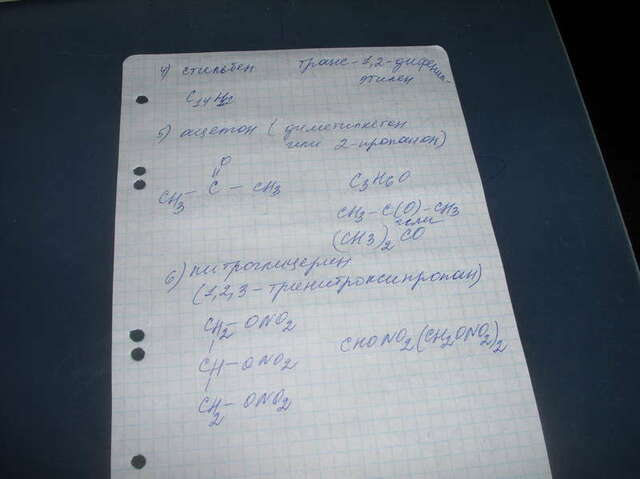 4) стильбен транс-1,2-дифенил-
этилен
C14H12
5) ацетон (диметилкетон
или 2-пропанон)
O
||
CH3 - C - CH3 C3H6O
CH3-C(O)-CH3
или
(CH3)2CO
6) нитроглицерин
(1,2,3-тринитроксипропан)
CH2-ONO2
|
CH-ONO2 CHONO2(CH2ONO2)2
|
CH2-ONO2